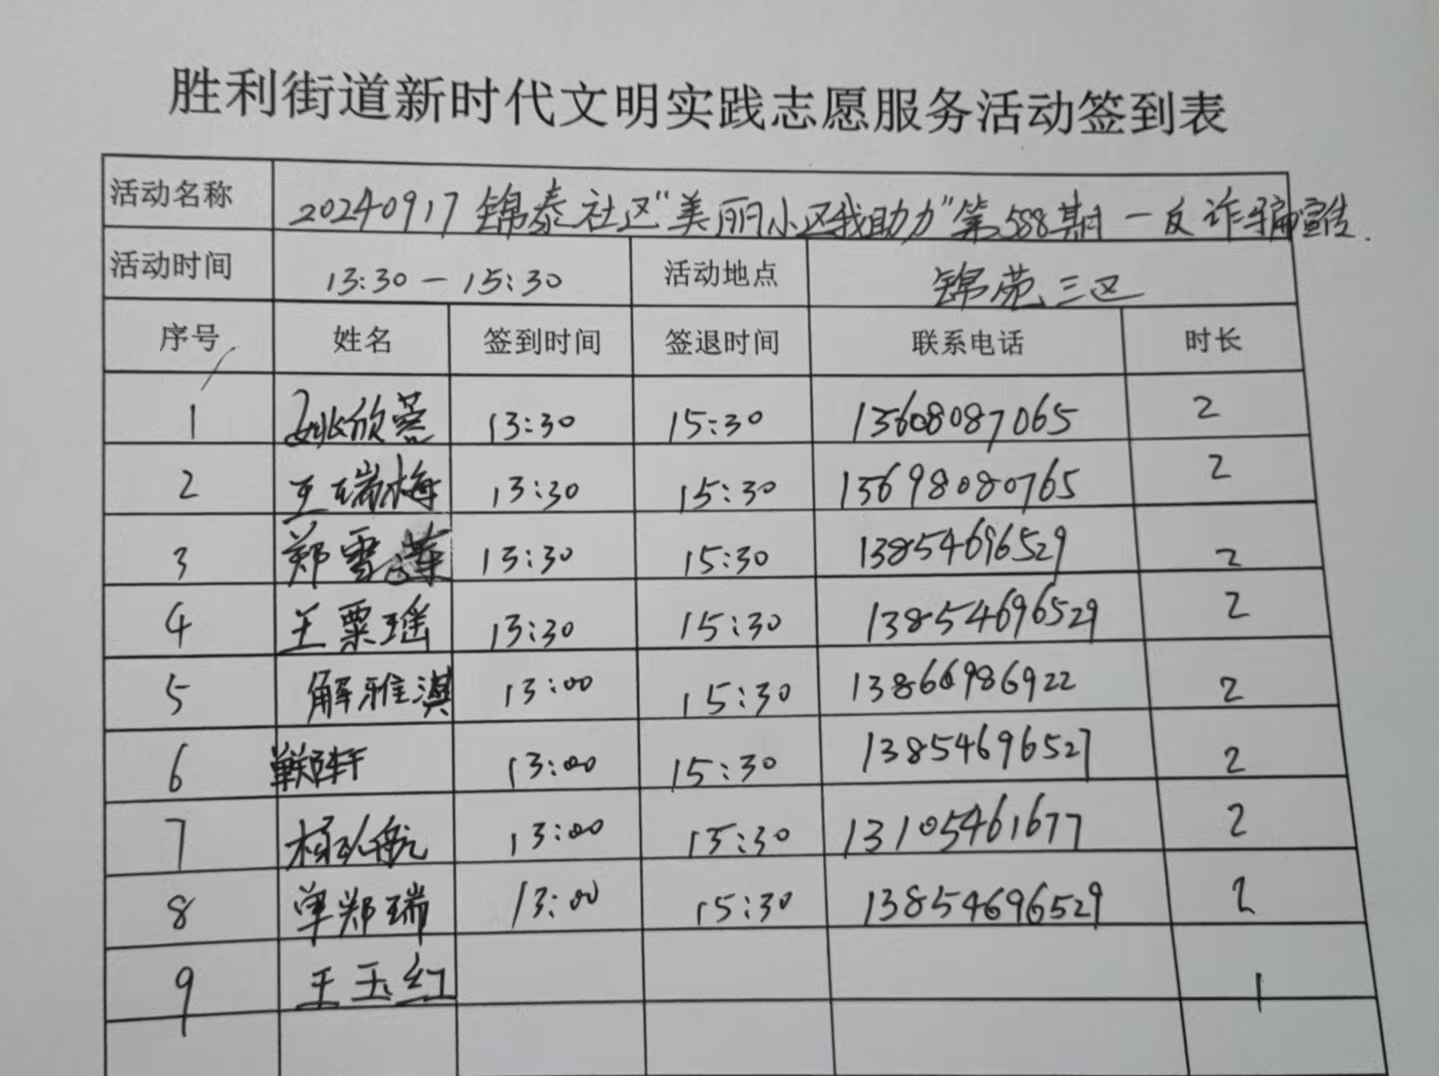 胜利街道新时代文明实践志愿服务活动签到表
活动名称 20240917 锦泰社区"美丽小区我助力"第588期—反诈骗宣传.
活动时间 13:30—15:30 活动地点 锦苑三区
序号 姓名 签到时间 签退时间 联系电话 时长
1 姚欣蓉 13:30 15:30 13608087065 2
2 王瑞梅 13:30 15:30 15698080765 2
3 郑雪莲 13:30 15:30 13854696529 2
4 王粟瑶 13:30 15:30 13854696529 2
5 解雅淇 13:00 15:30 13866986922 2
6 13:00 15:30 13854696527 2
7 13:00 15:30 13105461677 2
8 单郑瑞 13:00 15:30 13854696529 2
9 王玉红 1